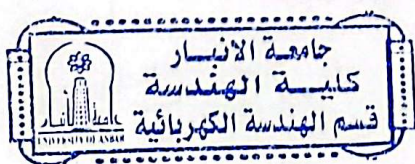 جامعة الانبار
كليــة الهندسة
قسم الهندسة الكهربائية
UNIVERSITY OF ANBAR